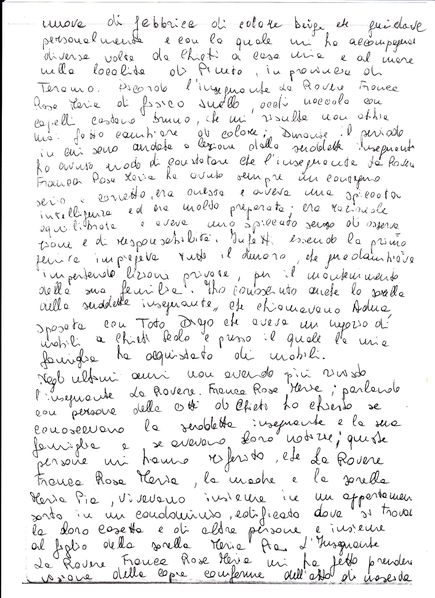 nuova di fabbrica di colore beige che guidava
personalmente e con la quale mi ha accompagnata
diverse volte da Chieti a casa mia e al mare
nella località di Pineto, in provincia di
Teramo. Ricordo l'insegnante La Rovere Franca
Rosa Maria di fisico snello, occhi nocciola con
capelli castano bruno, che mi risulta non abbia
mai fatto cambiare di colore; Durante il periodo
in cui sono andata a lezione dalla suddetta insegnante
ho avuto modo di constatare che l'insegnante La Rovere
Franca Rosa Maria ha avuto sempre un contegno
serio e corretto, era onesta e aveva una spiccata
intelligenza ed era molto preparata; era razionale
equilibrata e aveva uno spiccato senso di osserva
zione e di responsabilità. Infatti essendo la prima
figlia impiegava tutto il denaro, che guadagnava
impartendo lezioni private, per il mantenimento
della sua famiglia. Ho conosciuto anche la sorella
della suddetta insegnante, che chiamavano Adua
sposata con Toto Diego che aveva un negozio di
mobili a Chieti Scalo e presso il quale la mia
famiglia ha acquistato di mobili.
Negli ultimi anni non avendo più rivisto
l'insegnante La Rovere Franca Rosa Maria; parlando
con persone della città di Chieti ho chiesto se
conoscevano la suddetta insegnante e la sua
famiglia e se avevano loro notizie; queste
persone mi hanno riferito, che La Rovere
Franca Rosa Maria, la madre e la sorella
Maria Pia, vivevano insieme in un appartamen
to in un condominio, edificato dove si trova
la loro casetta e di altre persone e insieme
al figlio della sorella Maria Pia. L'Insegnante
La Rovere Franca Rosa Maria mi ha fatto prendere
visione della copia conforme dell'atto di nascita